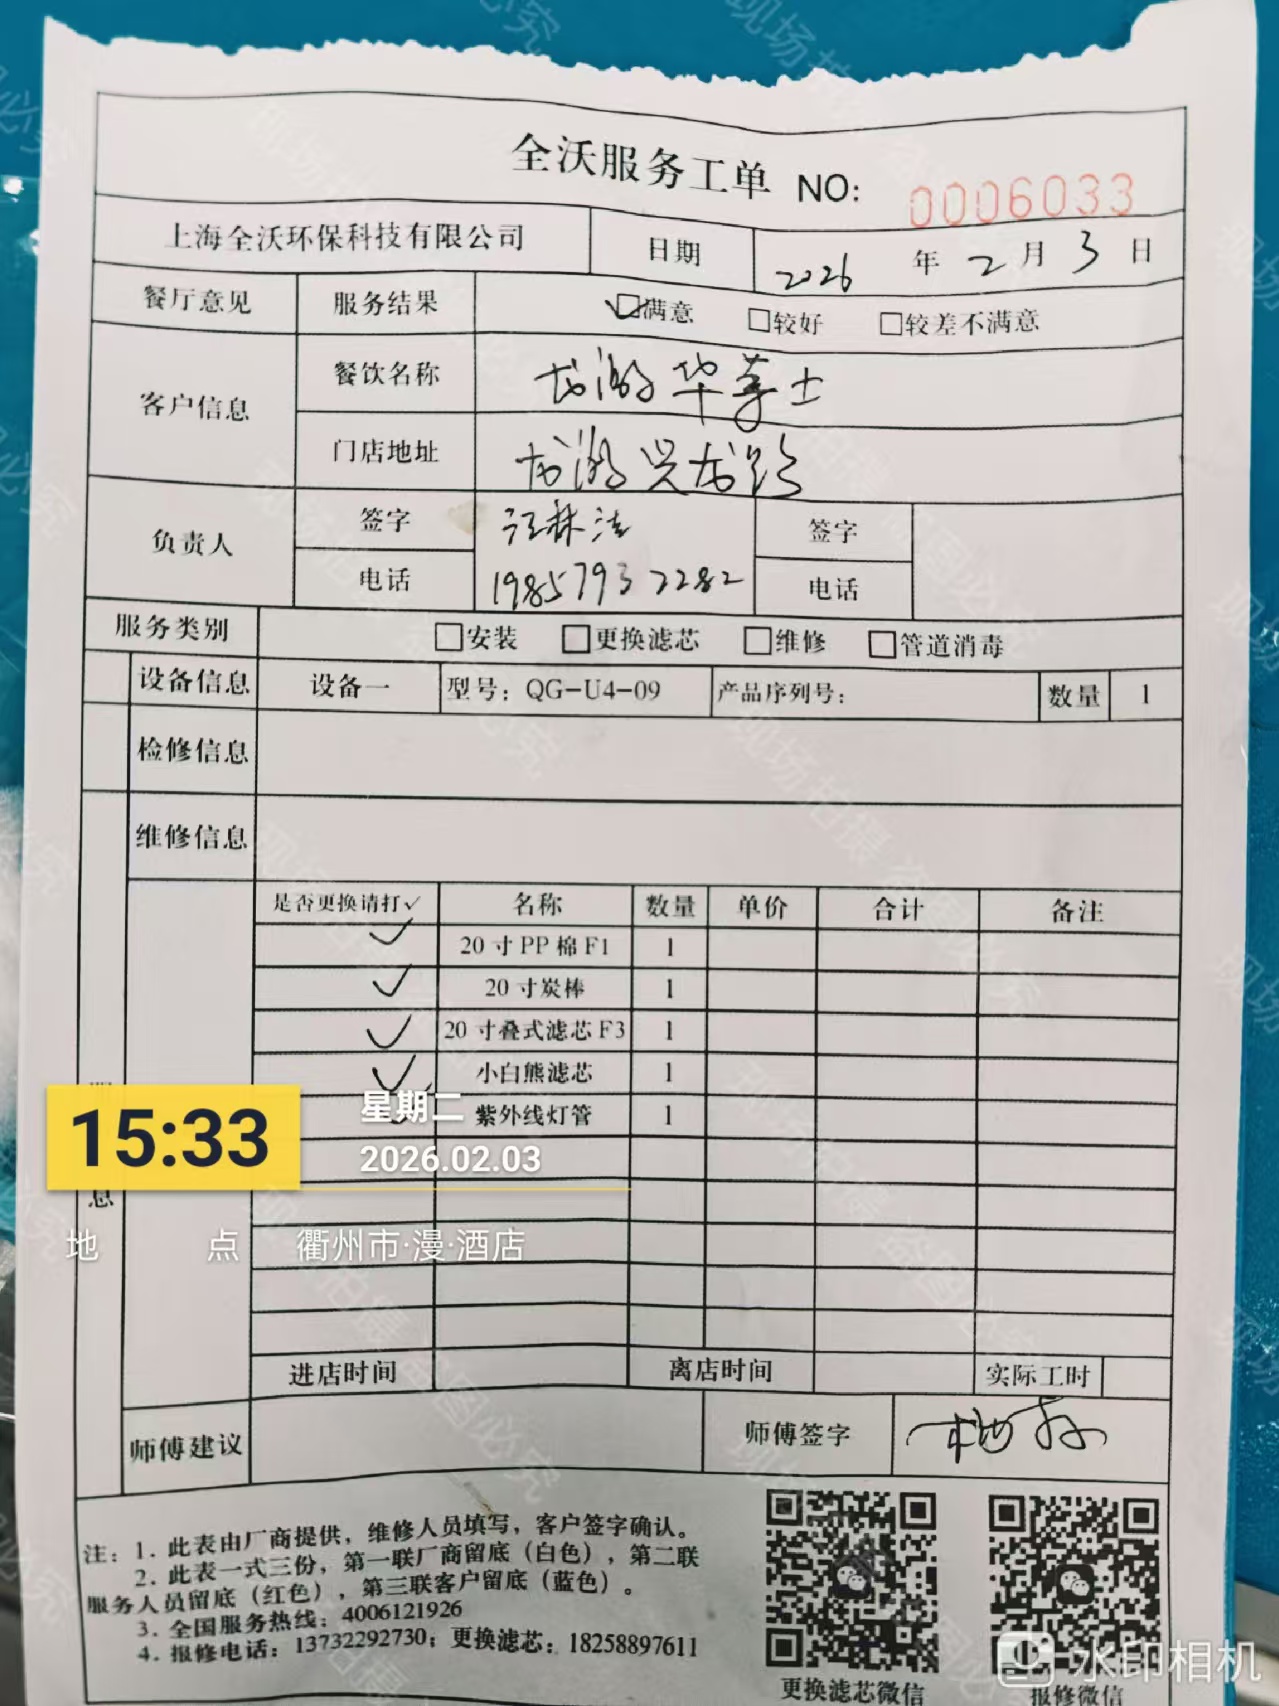 全沃服务工单 NO: 0006033
上海全沃环保科技有限公司 日期 2026 年 2 月 3 日
餐厅意见 服务结果 ☑满意 □较好 □较差不满意
客户信息 餐饮名称 龙游华莱士
门店地址 龙游兴龙路
负责人 签字 江林法 签字
电话 19857932282 电话
服务类别 □安装 □更换滤芯 □维修 □管道消毒
设备信息 设备一 型号：QG-U4-09 产品序列号： 数量 1
检修信息
维修信息
是否更换请打✓ 名称 数量 单价 合计 备注
✓ 20寸PP棉F1 1
✓ 20寸炭棒 1
✓ 20寸叠式滤芯F3 1
✓ 小白熊滤芯 1
紫外线灯管 1
15:33
星期二
2026.02.03
息
地 点 衢州市·漫·酒店
进店时间 离店时间 实际工时
师傅建议 师傅签字
注：1. 此表由厂商提供，维修人员填写，客户签字确认。
2. 此表一式三份，第一联厂商留底（白色），第二联
服务人员留底（红色），第三联客户留底（蓝色）。
3. 全国服务热线：4006121926
4. 报修电话：13732292730；更换滤芯：18258897611
更换滤芯微信 报修微信
水印相机